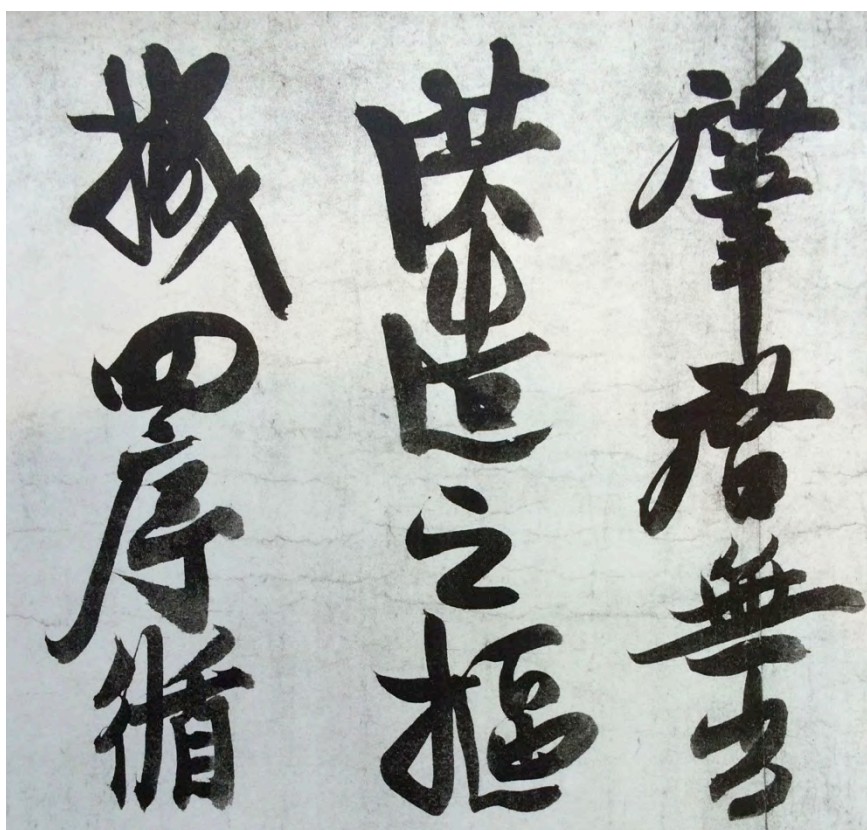 肇啓無
洪造之樞
機四序循